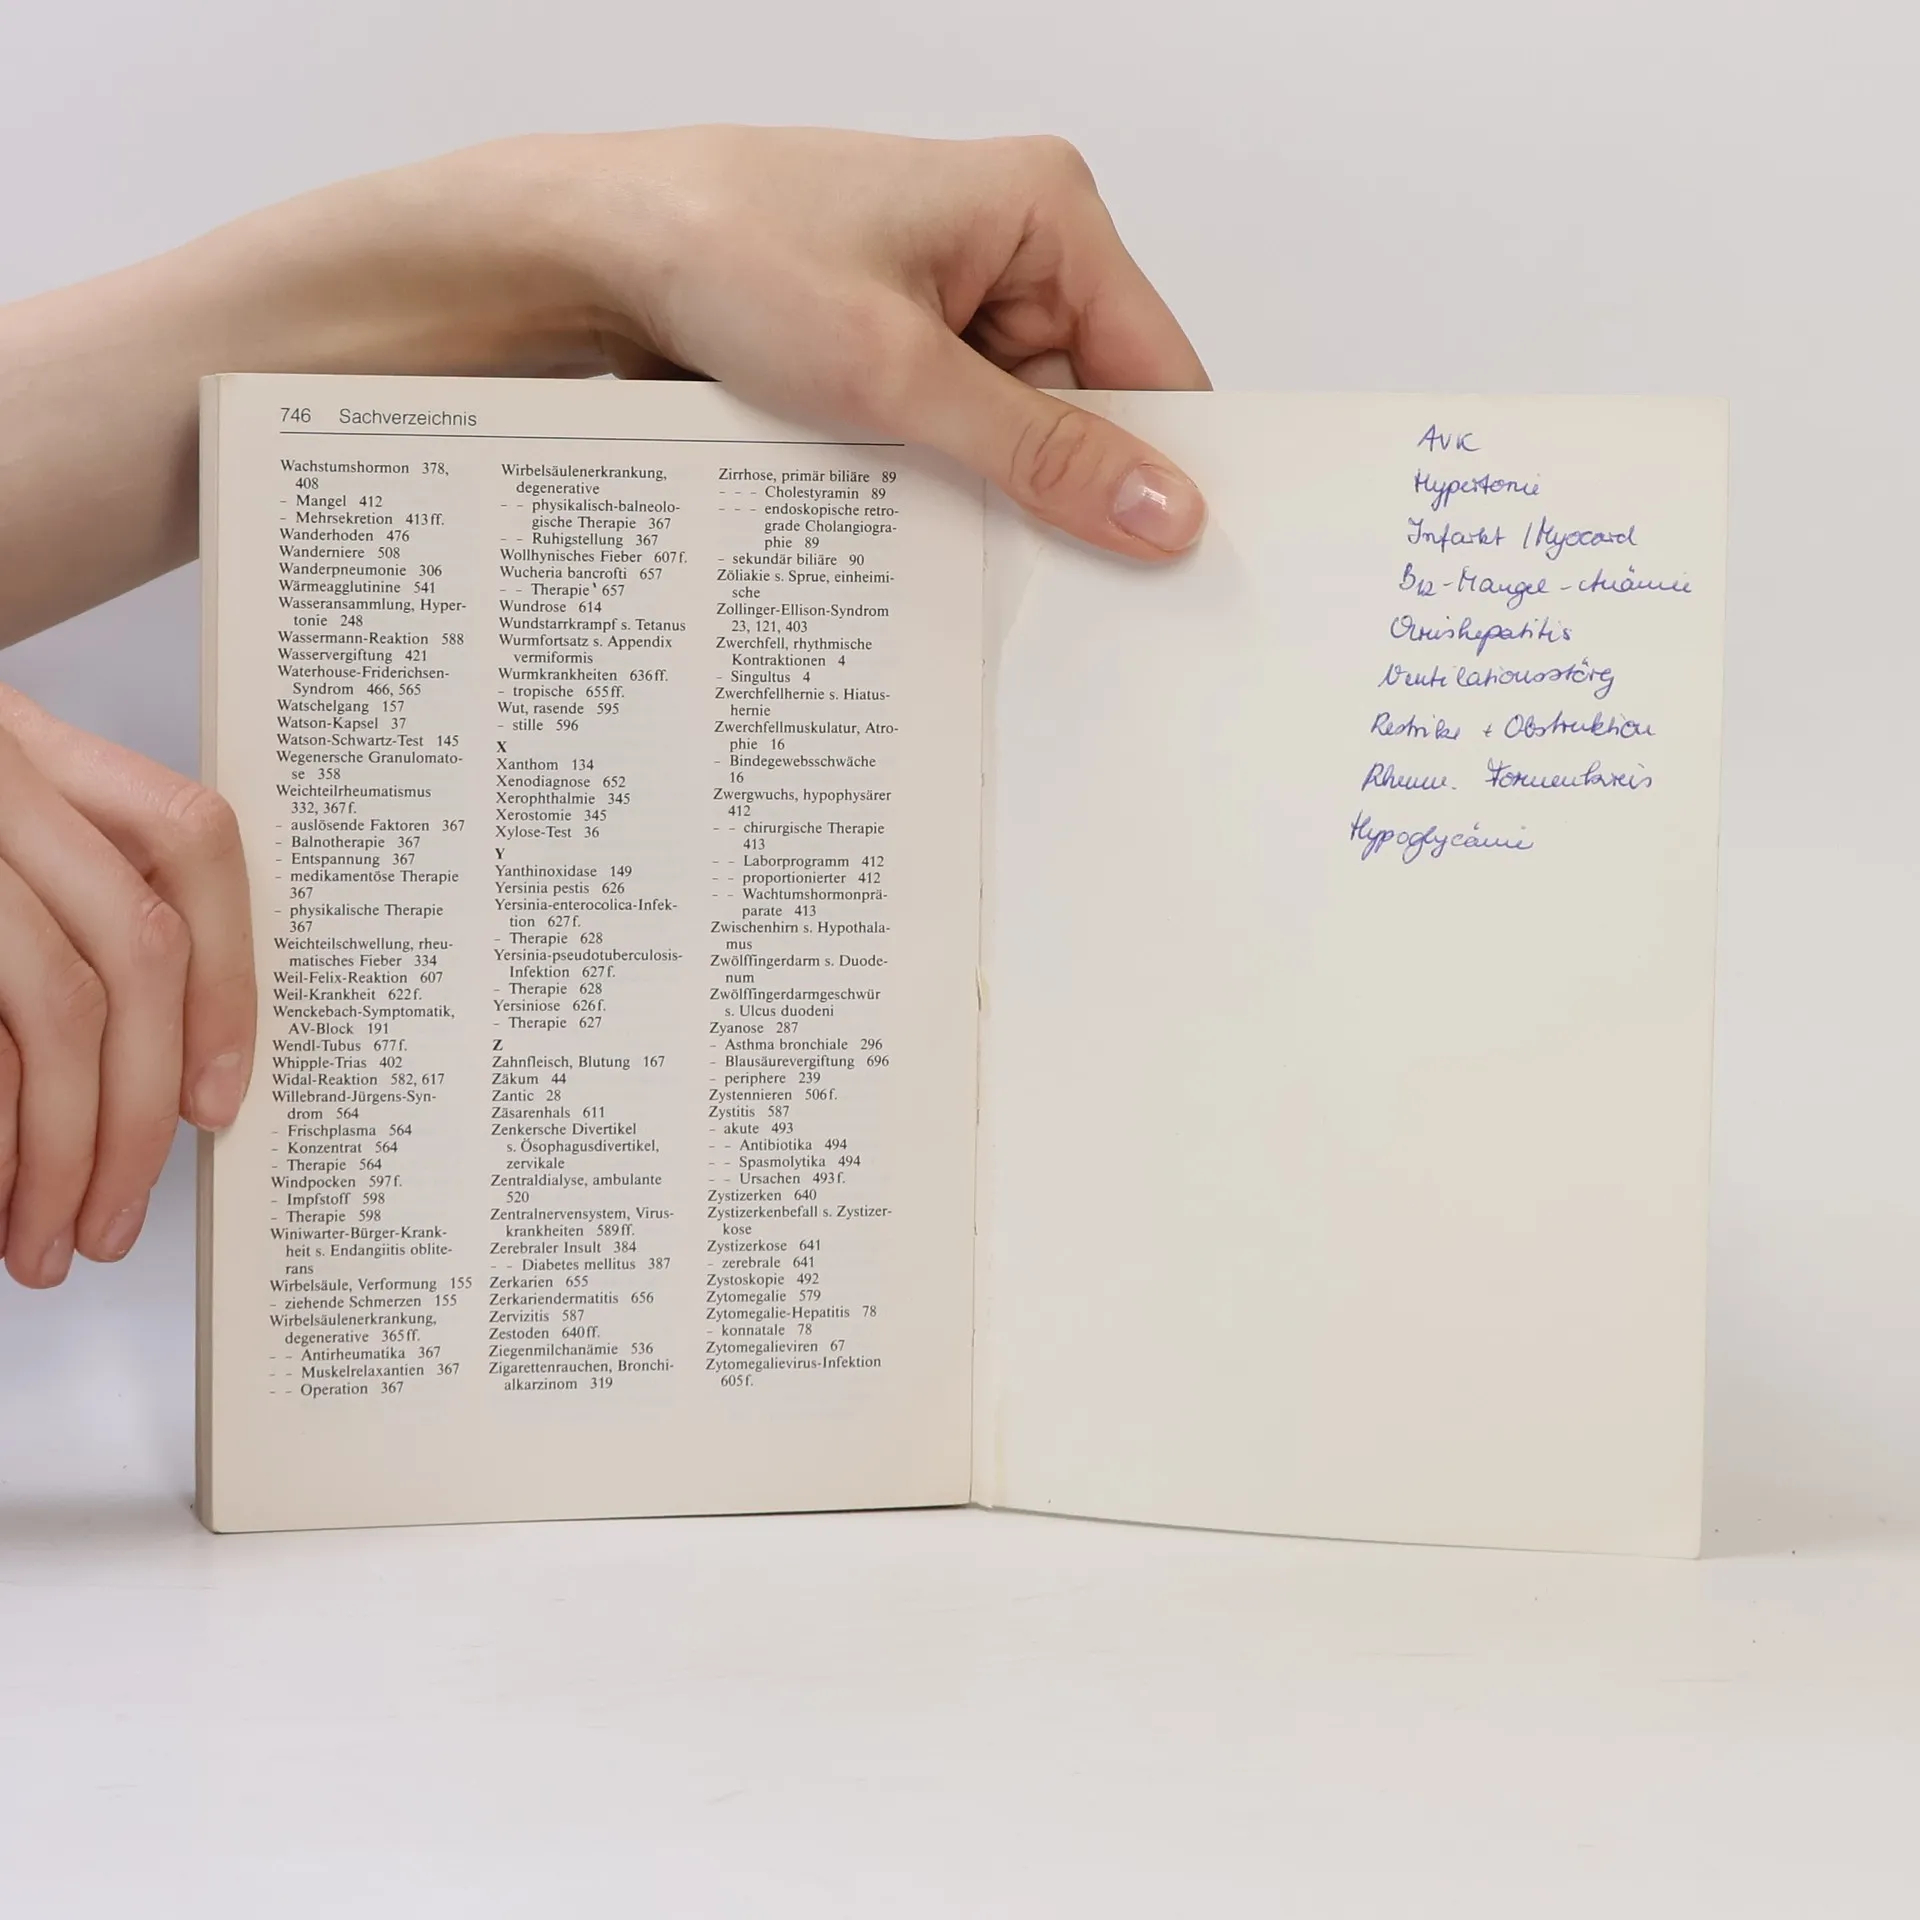 746 Sachverzeichnis
Wachstumshormon 378,
408
- Mangel 412
- Mehrsekretion 413 ff.
Wanderhoden 476
Wanderniere 508
Wanderpneumonie 306
Wärmeagglutinine 541
Wasseransammlung, Hyper-
tonie 248
Wassermann-Reaktion 588
Wasservergiftung 421
Waterhouse-Friderichsen-
Syndrom 466, 565
Watschelgang 157
Watson-Kapsel 37
Watson-Schwartz-Test 145
Wegenersche Granulomato-
se 358
Weichteilrheumatismus
332, 367 f.
- auslösende Faktoren 367
- Balnotherapie 367
- Entspannung 367
- medikamentöse Therapie
367
- physikalische Therapie
367
Weichteilschwellung, rheu-
matisches Fieber 334
Weil-Felix-Reaktion 607
Weil-Krankheit 622 f.
Wenckebach-Symptomatik,
AV-Block 191
Wendl-Tubus 677 f.
Whipple-Trias 402
Widal-Reaktion 582, 617
Willebrand-Jürgens-Syn-
drom 564
- Frischplasma 564
- Konzentrat 564
- Therapie 564
Windpocken 597 f.
- Impfstoff 598
- Therapie 598
Winiwarter-Bürger-Krank-
heit s. Endangiitis oblite-
rans
Wirbelsäule, Verformung 155
- ziehende Schmerzen 155
Wirbelsäulenerkrankung,
degenerative 365 ff.
- - Antirheumatika 367
- - Muskelrelaxantien 367
- - Operation 367
Wirbelsäulenerkrankung,
degenerative
- - physikalisch-balneolo-
gische Therapie 367
- - Ruhigstellung 367
Wollhynisches Fieber 607 f.
Wucheria bancrofti 657
- - Therapie 657
Wundrose 614
Wundstarrkrampf s. Tetanus
Wurmfortsatz s. Appendix
vermiformis
Wurmkrankheiten 636 ff.
- tropische 655 ff.
Wut, rasende 595
- stille 596
X
Xanthom 134
Xenodiagnose 652
Xerophthalmie 345
Xerostomie 345
Xylose-Test 36
Y
Yanthinoxidase 149
Yersinia pestis 626
Yersinia-enterocolica-Infek-
tion 627 f.
- Therapie 628
Yersinia-pseudotuberculosis-
Infektion 627 f.
- Therapie 628
Yersiniose 626 f.
- Therapie 627
Z
Zahnfleisch, Blutung 167
Zäkum 44
Zantic 28
Zäsarenhals 611
Zenkersche Divertikel
s. Ösophagusdivertikel,
zervikale
Zentraldialyse, ambulante
520
Zentralnervensystem, Virus-
krankheiten 589 ff.
Zerebraler Insult 384
- - Diabetes mellitus 387
Zerkarien 655
Zerkariendermatitis 656
Zervizitis 587
Zestoden 640 ff.
Ziegenmilchanämie 536
Zigarettenrauchen, Bronchi-
alkarzinom 319
Zirrhose, primär biliäre 89
- - - Cholestyramin 89
- - - endoskopische retro-
grade Cholangiogra-
phie 89
- sekundär biliäre 90
Zöliakie s. Sprue, einheimi-
sche
Zollinger-Ellison-Syndrom
23, 121, 403
Zwerchfell, rhythmische
Kontraktionen 4
- Singultus 4
Zwerchfellhernie s. Hiatus-
hernie
Zwerchfellmuskulatur, Atro-
phie 16
- Bindegewebsschwäche
16
Zwergwuchs, hypophysärer
412
- - chirurgische Therapie
413
- - Laborprogramm 412
- - proportionierter 412
- - Wachtumshormonprä-
parate 413
Zwischenhirn s. Hypothala-
mus
Zwölffingerdarm s. Duode-
num
Zwölffingerdarmgeschwür
s. Ulcus duodeni
Zyanose 287
- Asthma bronchiale 296
- Blausäurevergiftung 696
- periphere 239
Zystennieren 506 f.
Zystitis 587
- akute 493
- - Antibiotika 494
- - Spasmolytika 494
- - Ursachen 493 f.
Zystizerken 640
Zystizerkenbefall s. Zystizer-
kose
Zystizerkose 641
- zerebrale 641
Zystoskopie 492
Zytomegalie 579
Zytomegalie-Hepatitis 78
- konnatale 78
Zytomegalieviren 67
Zytomegalievirus-Infektion
605 f.
AVK
Hypertonie
Infarkt / Myocard
B12-Mangel-Anämie
Virushepatitis
Ventilationsstörg
Restrikt + Obstruktion
Rheum. Formenkreis
Hypoglycämie